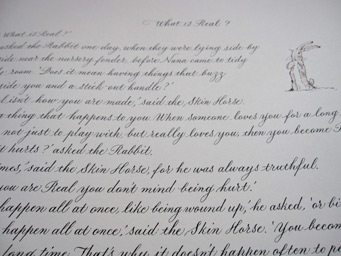 What is Real ?
What is Real ?'
asked the Rabbit one day, when they were lying side by
side near the nursery fender, before Nana came to tidy
room. 'Does it mean having things that buzz
side you and a stick-out handle?'
isn't how you are made,' said the Skin Horse.
a thing that happens to you. When someone loves you for a long
not just to play with, but really loves you, then you become
it hurts?' asked the Rabbit.
said the Skin Horse, for he was always truthful.
you are Real you don't mind being hurt.'
happen all at once, like being wound up,' he asked, 'or
happen all at once,' said the Skin Horse. 'You
long time. That's why it doesn't happen often to